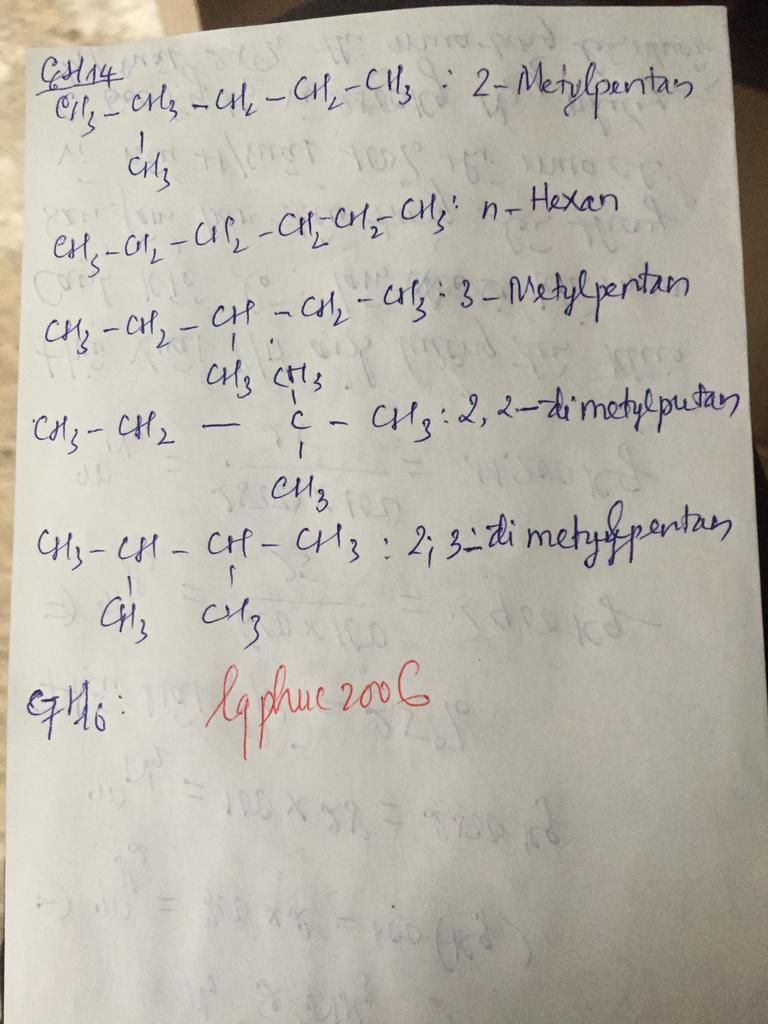 C6H14
CH3 - CH3 - CH2 - CH2 - CH3 : 2 - Metylpentan
CH3
CH3 - CH2 - CH2 - CH2 - CH2 - CH3 : n - Hexan
CH3 - CH2 - CH - CH2 - CH3 : 3 - Metylpentan
CH3 CH3
CH3 - CH2 — C - CH3 : 2, 2 - dimetylputan
CH3
CH3 - CH - CH - CH3 : 2; 3 - di metylpentan
CH3 CH3
C7H16 : lqphuc2006